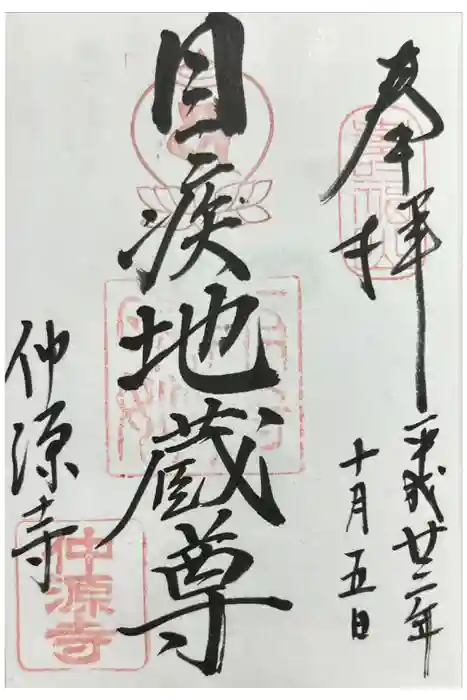 奉拝
平成廿二年
十月五日
目疾地蔵尊
仲源寺
仲源寺